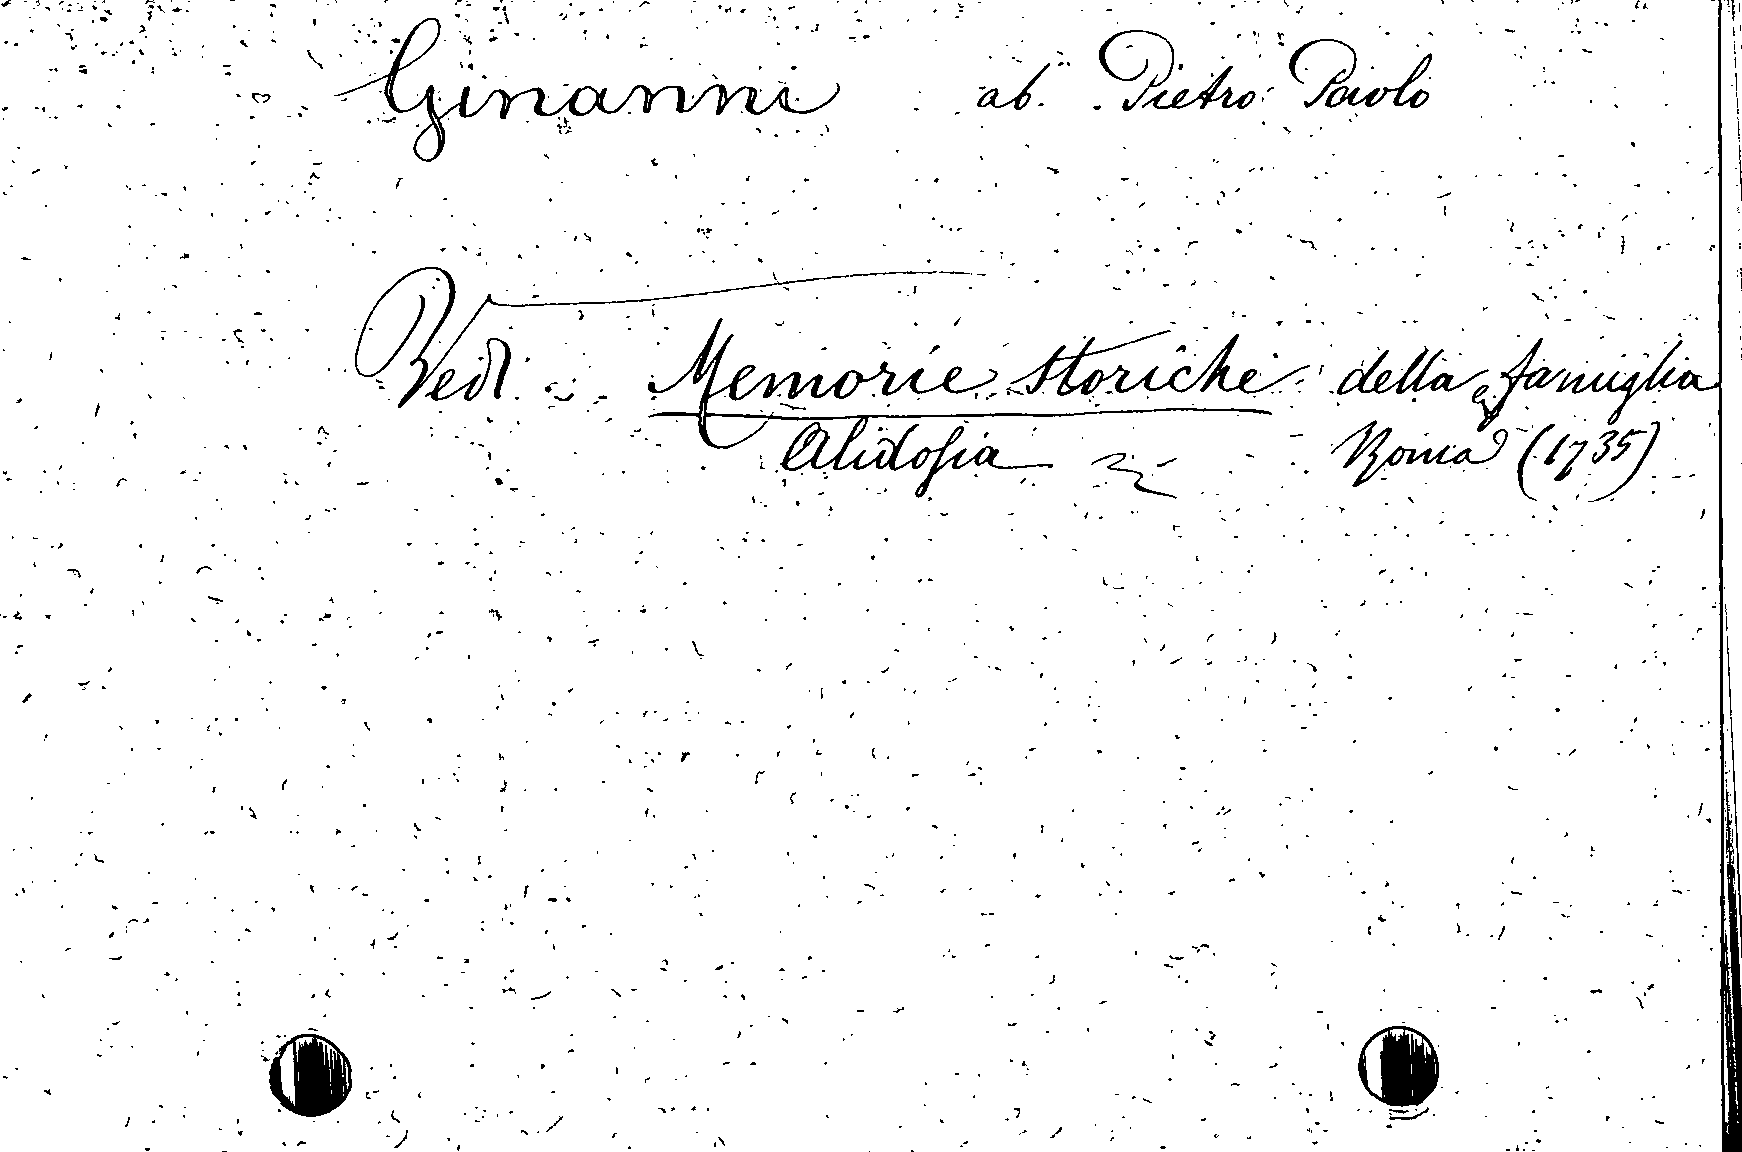 Ginanni ab. Pietro Paolo
Vedi Memorie storiche della famiglia
Alidosia Roma (1735)